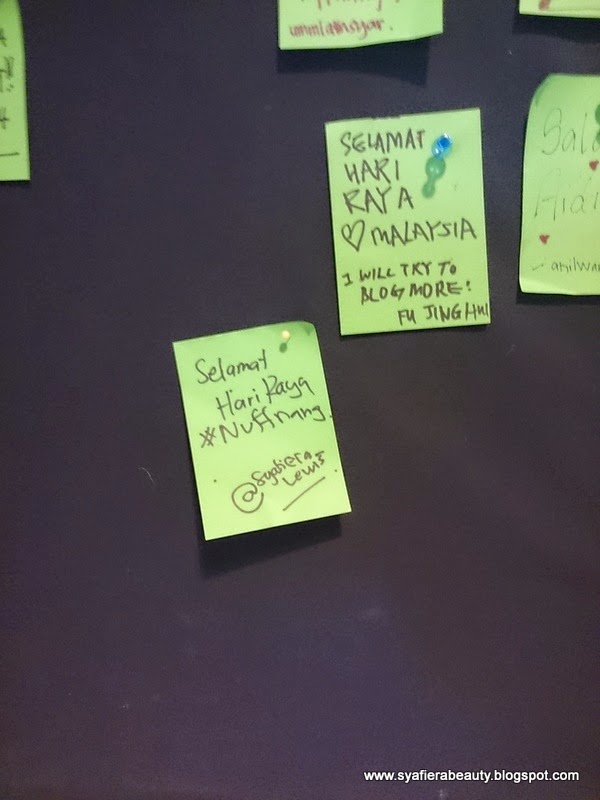 ummiatnsyar.
SELAMAT
HARI
RAYA
♡ MALAYSIA
I WILL TRY TO
BLOG MORE!
FU JING HUI
Selamat
Hari Raya
#Nuffnang.
@Syafiera
Lewis
www.syafierabeauty.blogspot.com